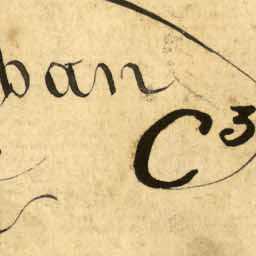 ban
C³